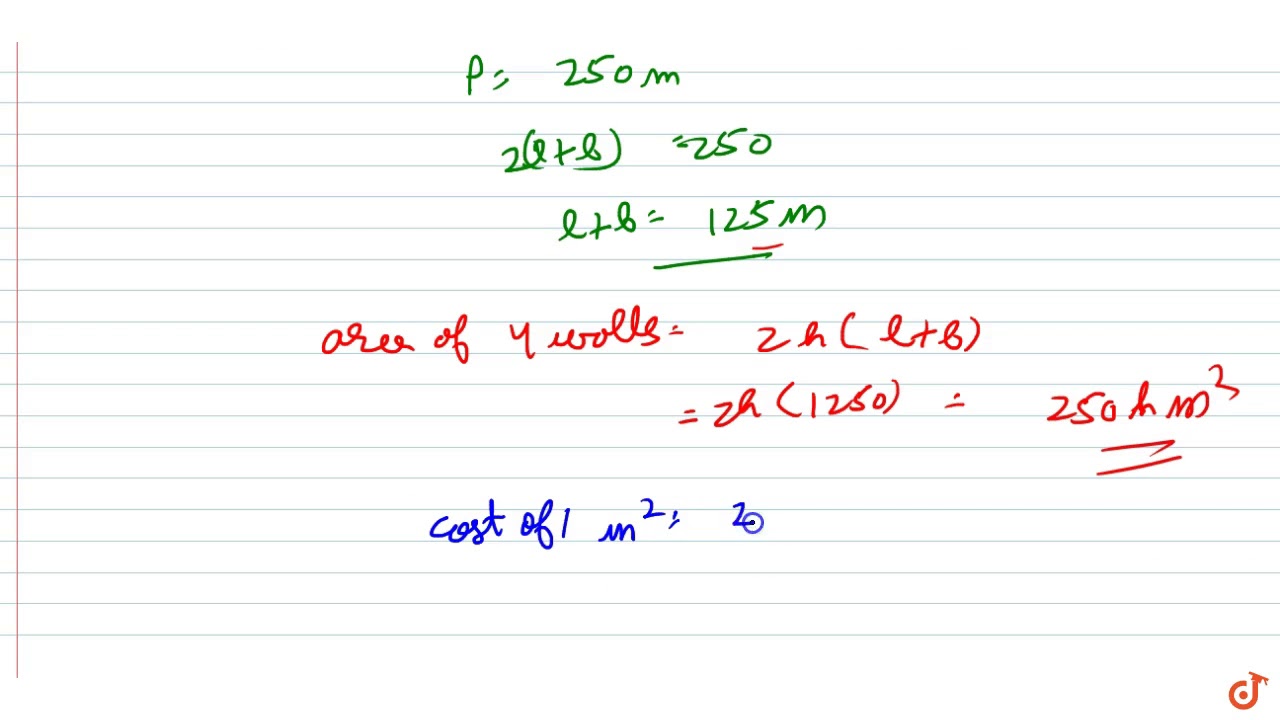 P = 250 m
2(l+b) = 250
l+b = 125 m
area of 4 walls = 2h(l+b)
= 2h(1250) = 250 h m²
cost of 1 m² = 2